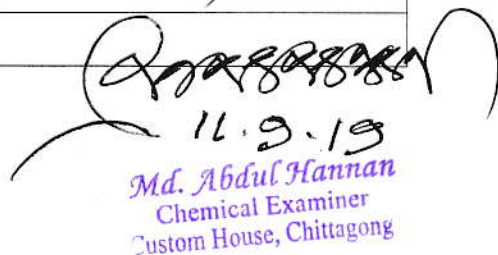 11.9.19
Md. Abdul Hannan
Chemical Examiner
Custom House, Chittagong